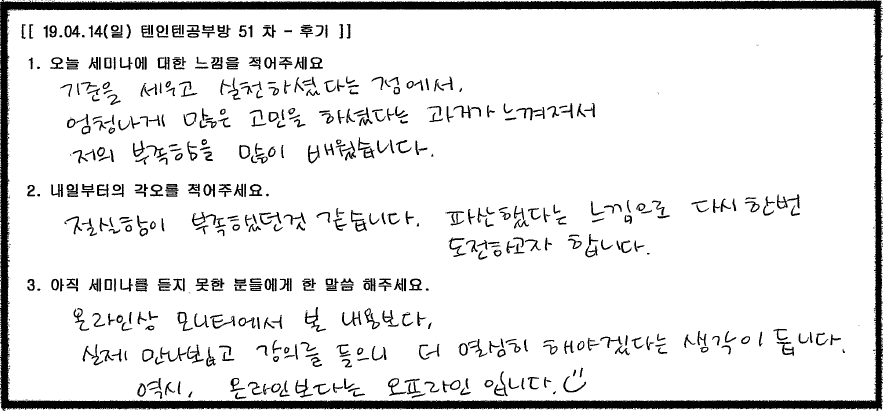 [[ 19.04.14(일) 텐인텐공부방 51 차 - 후기 ]]
1. 오늘 세미나에 대한 느낌을 적어주세요
기준을 세우고 실천하셨다는 점에서,
엄청나게 많은 고민을 하셨다는 과거가 느껴져서
저의 부족함을 많이 배웠습니다.
2. 내일부터의 각오를 적어주세요.
절실함이 부족했던것 같습니다. 파산했다는 느낌으로 다시한번
도전하고자 합니다.
3. 아직 세미나를 듣지 못한 분들에게 한 말씀 해주세요.
온라인상 모니터에서 본 내용보다,
실제 만나뵙고 강의를 들으니 더 열심히 해야겠다는 생각이 듭니다.
역시, 온라인보다는 오프라인 입니다.